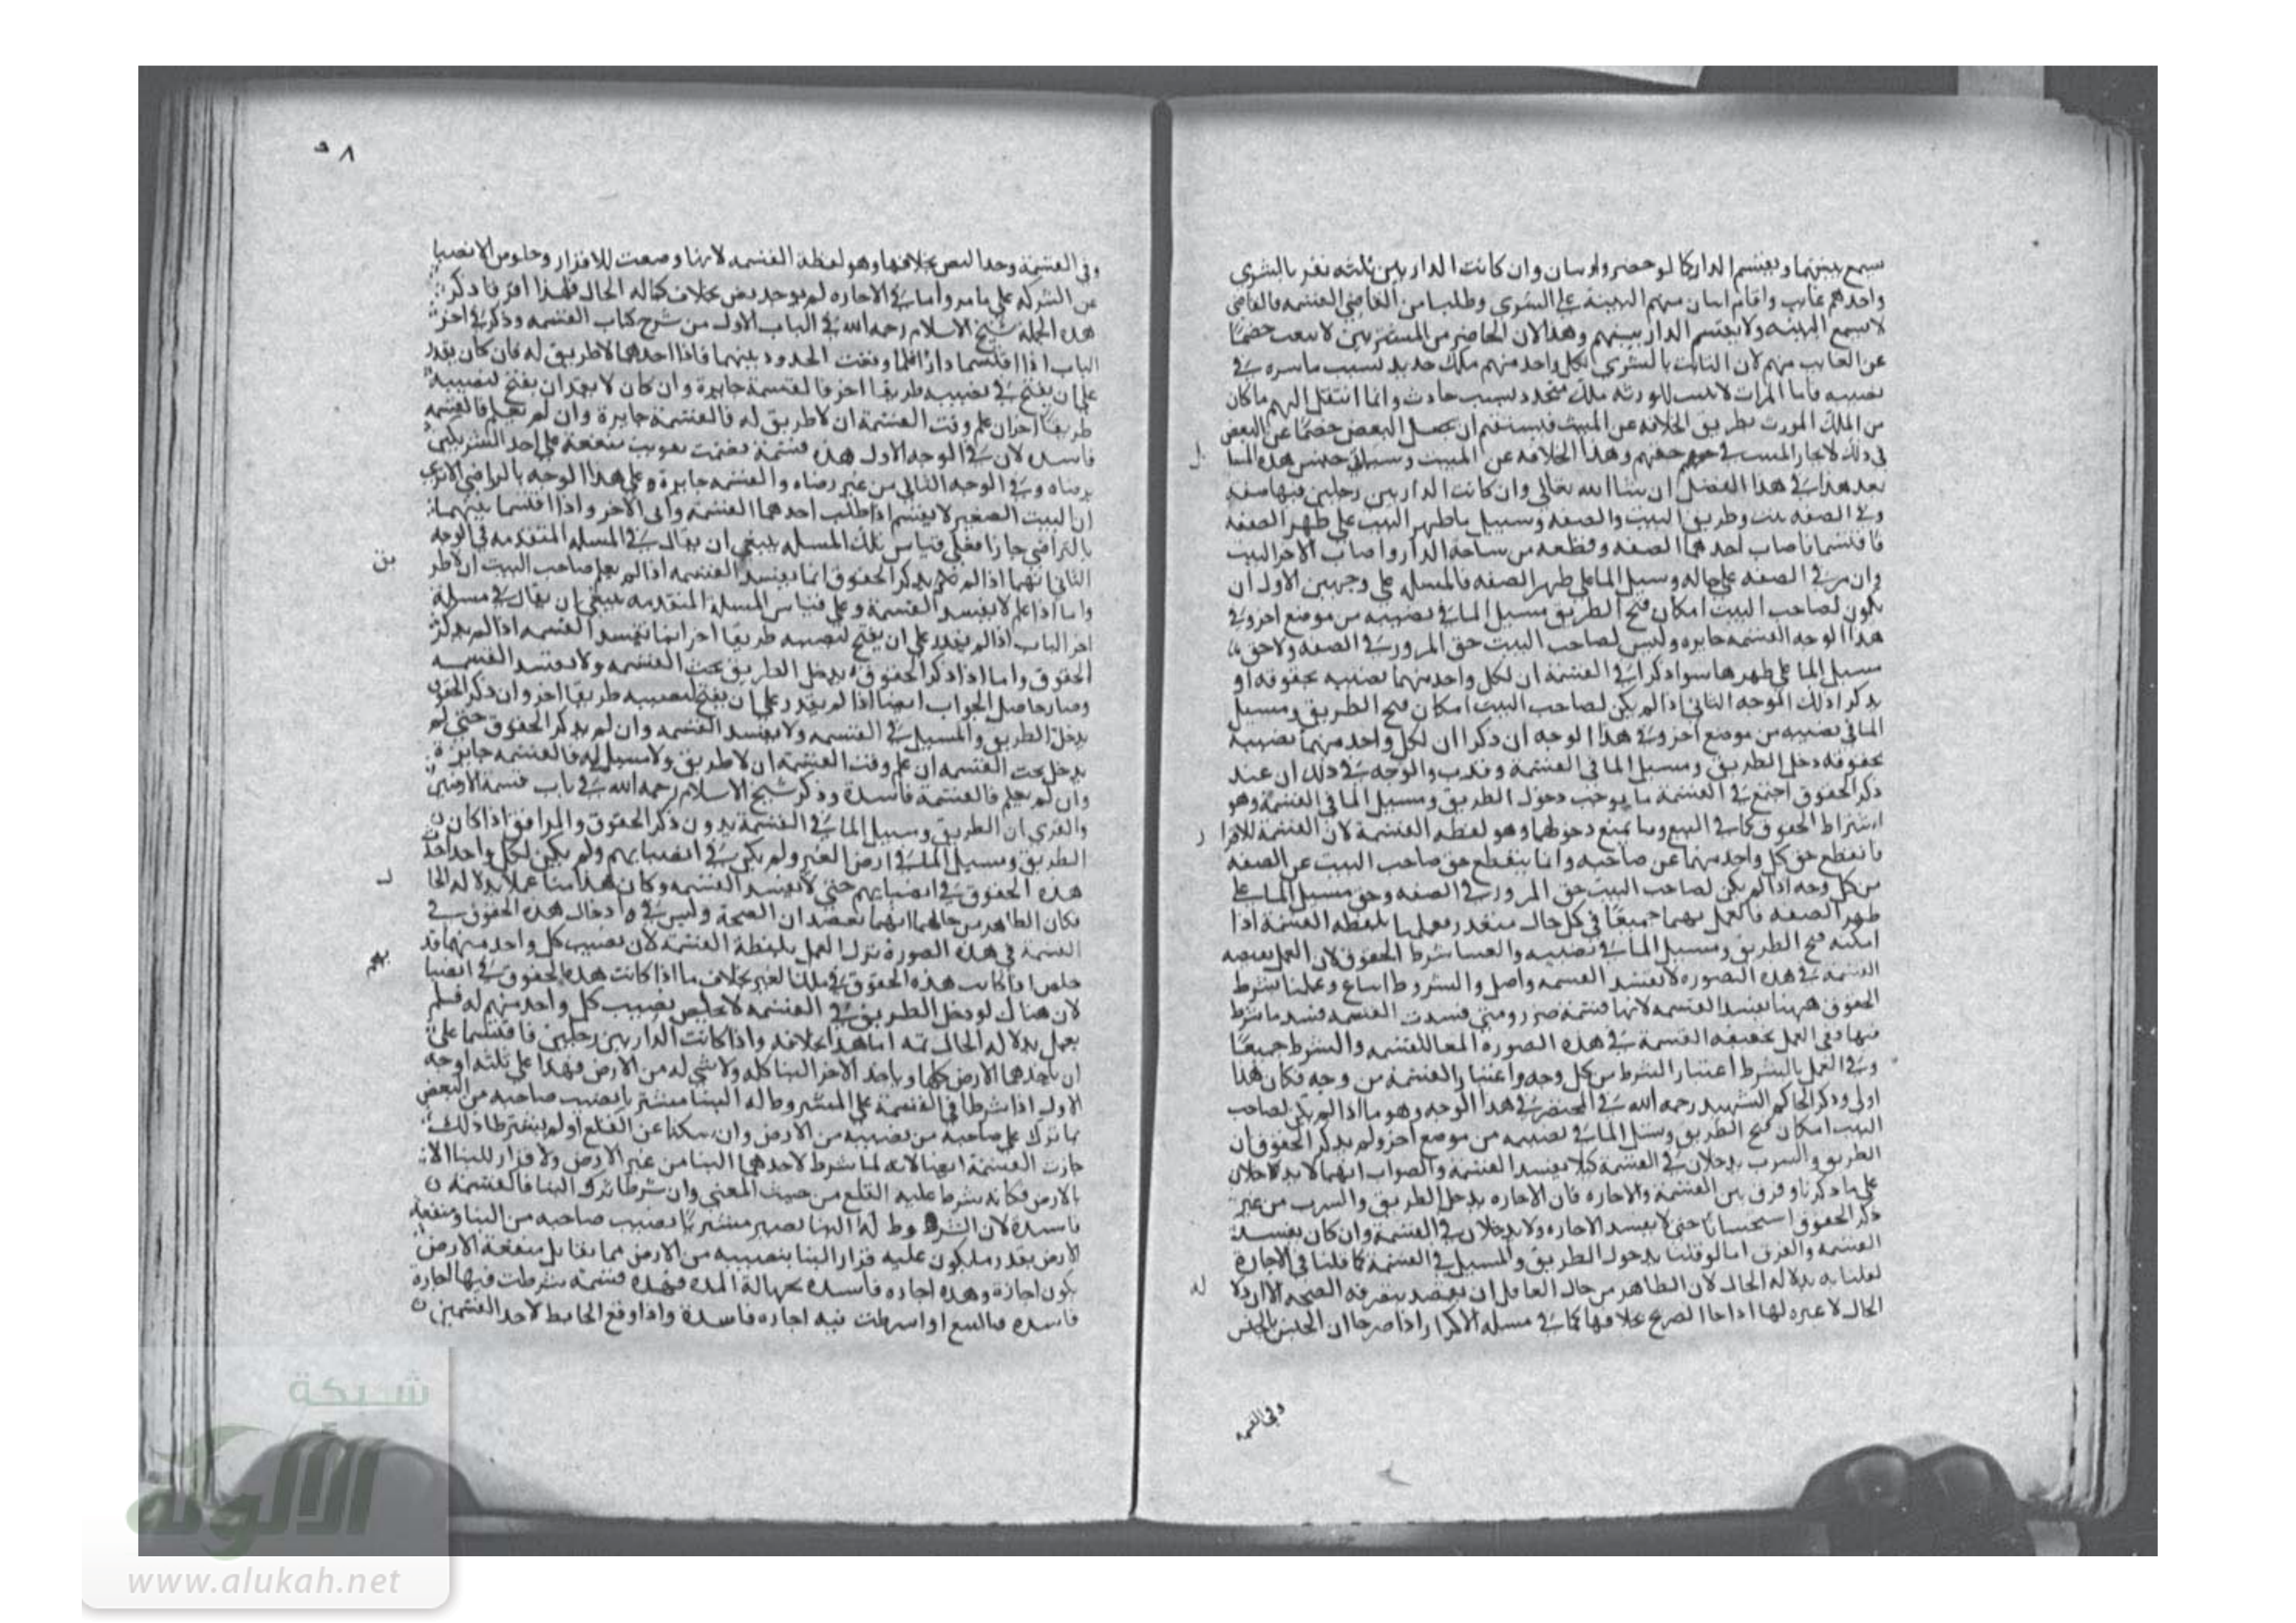 سمع بينتهما ويقسم الدار كما لو حضر وارثان وان كانت الدار بين ثلثه نفر بالشرى
واحدهم غايب واقام اثنان منهم البينة على الشرى وطلبا من القاضي القسمه فالقاضي
لا يسمع البينه ولا يقسم الدار بينهم وهذا لان الحاضر من المشتريين لا ينتصب خصمًا
عن الغايب منهم لان الثابت بالشرى لكل واحد منهم ملك جديد بسبب باشره في
نصيبه فاما الميراث لا يثبت للورثه ملك متجدد بسبب حادث وانما انتقل اليهم ما كان
من الملك المورث بطريق الخلافه عن الميت فيستقيم ان يجعل البعض خصمًا عن البعض
في ذلك وهذا الخلافه عن الميت وسياتى جنس هذه المسا
بعد هذا في هذا الفصل ان شا الله تعالى وان كانت الدار بين رجلين فيها صفه
وفى الصفه بيت وطريق البيت والصفه ومسيل ما ظهر البيت على ظهر الصفه
فاقتسما فاصاب احدهما الصفه وقطعه من ساحة الدار واصاب الاخر البيت
على حاله ومسيل الما على ظهر الصفه فالمسله على وجهين الاول ان
يكون لصاحب البيت امكان فتح الطريق ومسيل الما في نصيبه من موضع اخر وفي
هذا الوجه القسمه جايره وليس لصاحب البيت حق المرور في الصفه ولا حق
مسيل الما على ظهرها سوا ذكرا في القسمة ان لكل واحد منهما نصيبه بحقوقه او
لم يذكرا ذلك الوجه الثانى اذا لم يكن لصاحب البيت امكان فتح الطريق ومسيل
الما في نصيبه من موضع اخر وفي هذا الوجه ان ذكرا ان لكل واحد منهما نصيبه
بحقوقه دخل الطريق ومسيل الما في القسمة والوجه في ذلك ان عند
ذكر الحقوق اجتمع في القسمة ما يوجب دخول الطريق ومسيل الما في القسمة وهو
اشتراط الحقوق كما في البيع وما يمنع دخولهما وهو لفظه القسمة لان القسمة للافرا
فانقطع حق كل واحد منهما عن صاحبه وانما ينقطع حق صاحب البيت عن الصفه
من كل وجه اذا لم يكن لصاحب البيت حق المرور في الصفه وحق مسيل الما على
ظهر الصفه فالعمل بهما جميعًا في كل حال متعذر فعملنا بلفظه القسمة اذا
امكنه فتح الطريق ومسيل الما في نصيبه والغينا شرط الحقوق لان العمل
القسمة في هذه الصوره لا يفسد القسمه واصل والشروط اتباع وعملنا بشرط
الحقوق ههنا القسمه لانها قسمة ضرر ومتى فسدت القسمه فسد ما شرط
فيها ففى العمل بحقيقه القسمة في هذه الصوره الغا للقسمه والشرط جميعًا
وفي العمل بالشرط اعتبار الشرط من كل وجه واعتبار القسمة من وجه فكان هذا
اولى وذكر الحاكم الشهيد رحمه الله في المختصر في هذا الوجه وهو ما اذا لم يكن لصاحب
البيت امكان فتح الطريق ومسيل الما في نصيبه من موضع اخر ولم يذكر الحقوق ان
الطريق والسرب يدخلان في القسمة كيلا يفسد القسمة والصواب انهما لا يدخلان
على ما ذكرنا وفرق بين القسمة والاجاره فان الاجاره يدخل الطريق والسرب من غير
ذكر الحقوق استحسانًا حتى لا يفسد الاجاره ولا يدخلان في القسمة وان كان يفسد
القسمه والفرق انا لو قلنا بدخول الطريق والمسيل في القسمة كما قلنا في الاجارة
لقلنا به بدلاله الحال لان الظاهر من حال العاقل ان يقصد بتصرفه الصحه الا ان دلا
الحال لا عبره لها اذا جا الصريح بخلافها كما في مسله الاكرار اذا صرحا ان الجنس بالجنس
وفي القسمه
٥٨
وفى القسمة وجدا النص بخلافها وهو لفظة القسمه لانها وضعت للافراز وخلوص الانصبا
عن الشركه على ما مر واما في الاجاره لم يوجد نص بخلاف دلاله الحال فلهذا افترقا ذكر
هذه الجملة شيخ الاسلام رحمه الله في الباب الاول من شرح كتاب القسمه وذكر في اخر
الباب اذا اقتسما دارًا فلما وقعت الحدود بينهما فاذا احدهما لا طريق له فان كان يقدر
على ان يفتح في نصيبه طريقا اخر فالقسمة جايزة وان كان لا يقدر ان يفتح لنصيبه
طريقًا اخر ان علم وقت القسمة ان لا طريق له فالقسمة جايزة وان لم يعلم فالقسمه
فاسده لان في الوجه الاول هذه قسمة تضمنت تفويت منفعة على احد الشريكين
برضاه وفي الوجه الثانى من غير رضاه والقسمه جايزة وعلى هذا الوجه بالتراضى الا ترى
ان البيت الصغير لا يقسم اذا طلب احدهما القسمة وابى الاخر واذا اقتسما بينهما
بالتراضي جاز فعلى قياس تلك المسله ينبغي ان يقال في المسله المتقدمه في الوجه
الثانى انهما اذا لم يذكر الحقوق انما يفسد القسمه اذا لم يعلم صاحب البيت ان لا طر
واما اذا علم لا يفسد القسمة وعلى قياس المسلة المتقدمه ينبغي ان يقال في مسلة
اخر الباب اذا لم يقدر على ان يفتح لنصيبه طريقا اخر انما تفسد القسمه اذا لم يذكر
الحقوق واما اذا ذكر الحقوق يدخل الطريق تحت القسمه ولا يفسد القسمه
وصار حاصل الجواب ايضا اذا لم يقدر على ان يفتح لنصيبه طريقا اخر وان ذكر الحقوق
يدخل الطريق والمسيل في القسمه ولا يفسد القسمه وان لم يذكر الحقوق حتى لم
يدخل تحت القسمه ان علم وقت القسمة ان لا طريق ولا مسيل له فالقسمه جايزة
وان لم يعلم فالقسمة فاسدة وذكر شيخ الاسلام رحمه الله في باب قسمة الارضين
والقرى ان الطريق ومسيل الما في القسمة بدون ذكر الحقوق والمرافق اذا كان
الطريق ومسيل الما في ارض الغير ولم يكن في انصبايهم ولم يكن لكل واحد
هذه الحقوق في انصبايهم حتى لا تفسد القسمه وكان هذا منا عملا بدلاله الحا
فكان الظاهر من حالهما انهما يقصدان الصحة وليس في ادخال هذه الحقوق في
القسمة في هذه الصورة ترك العمل بلفظة القسمة لان نصيب كل واحد منهما قد
خلص اذا كانت هذه الحقوق في ملك الغير بخلاف ما اذا كانت هذه الحقوق في انصبا
لان هناك لو دخل الطريق في القسمه لا يخلص نصيب كل واحد منهم له فلم
يعمل بدلاله الحال ثمه اما هذا بخلافه واذا كانت الدار بين رجلين فاقتسما على
ان ياخذ احدهما الارض كلها وياخذ الاخر البنا كله ولا شي له من الارض فهذا على ثلثه اوجه
الاول اذا شرطا في القسمة على المشروط له البنا مشتر نصيب صاحبه من البعض
بما ترك على صاحبه من نصيبه من الارض وان سكتا عن القلع او لم يشترطا ذلك
جازت القسمة ايضا لانه لما شرط لاحدهما البنا من غير الارض ولا قرار للبنا الا
بالارض فكانه شرط عليه القلع من حيث المعنى وان شرطا ترك البنا فالقسمة
فاسدة لان المشروط له البنا يصير مشتريًا نصيب صاحبه من البنا ومنفعة
الارض بقدر ما يكون عليه قرار البنا بنصيبه من الارض مما يقابل منفعة الارض
يكون اجارة وهذه اجاره فاسده بجهالة المده فهذه قسمة شرطت فيها اجارة
فاسده كالبيع اذا شرطت فيه اجاره فاسدة واذا وقع الحايط لاحد القسمين
شبكة
الألوكة
www.alukah.net